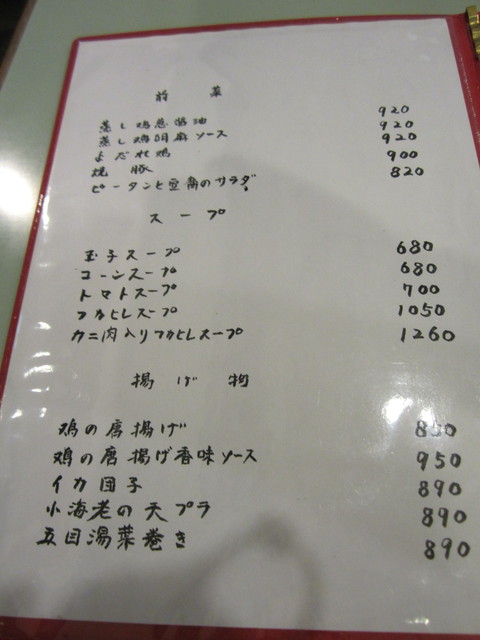 前菜
蒸し鶏葱醤油 920
蒸し鶏胡麻ソース 920
よだれ鶏 920
焼豚 900
ピータンと豆腐のサラダ 820
スープ
玉子スープ 680
コーンスープ 680
トマトスープ 700
フカヒレスープ 1050
カニ肉入りフカヒレスープ 1260
揚げ物
鶏の唐揚げ
鶏の唐揚げ香味ソース 950
イカ団子 890
小海老の天プラ 890
五目湯葉巻き 890